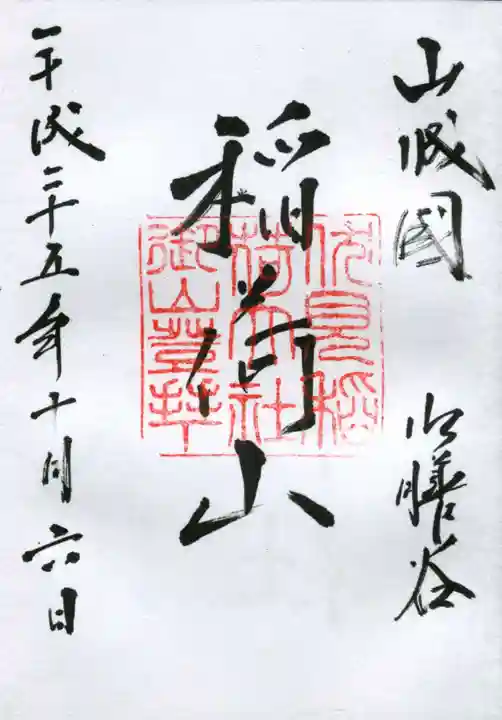 山城國 御膳谷
稲荷山
伏見稲
荷大社
御山奉拝
平成二十五年十月六日